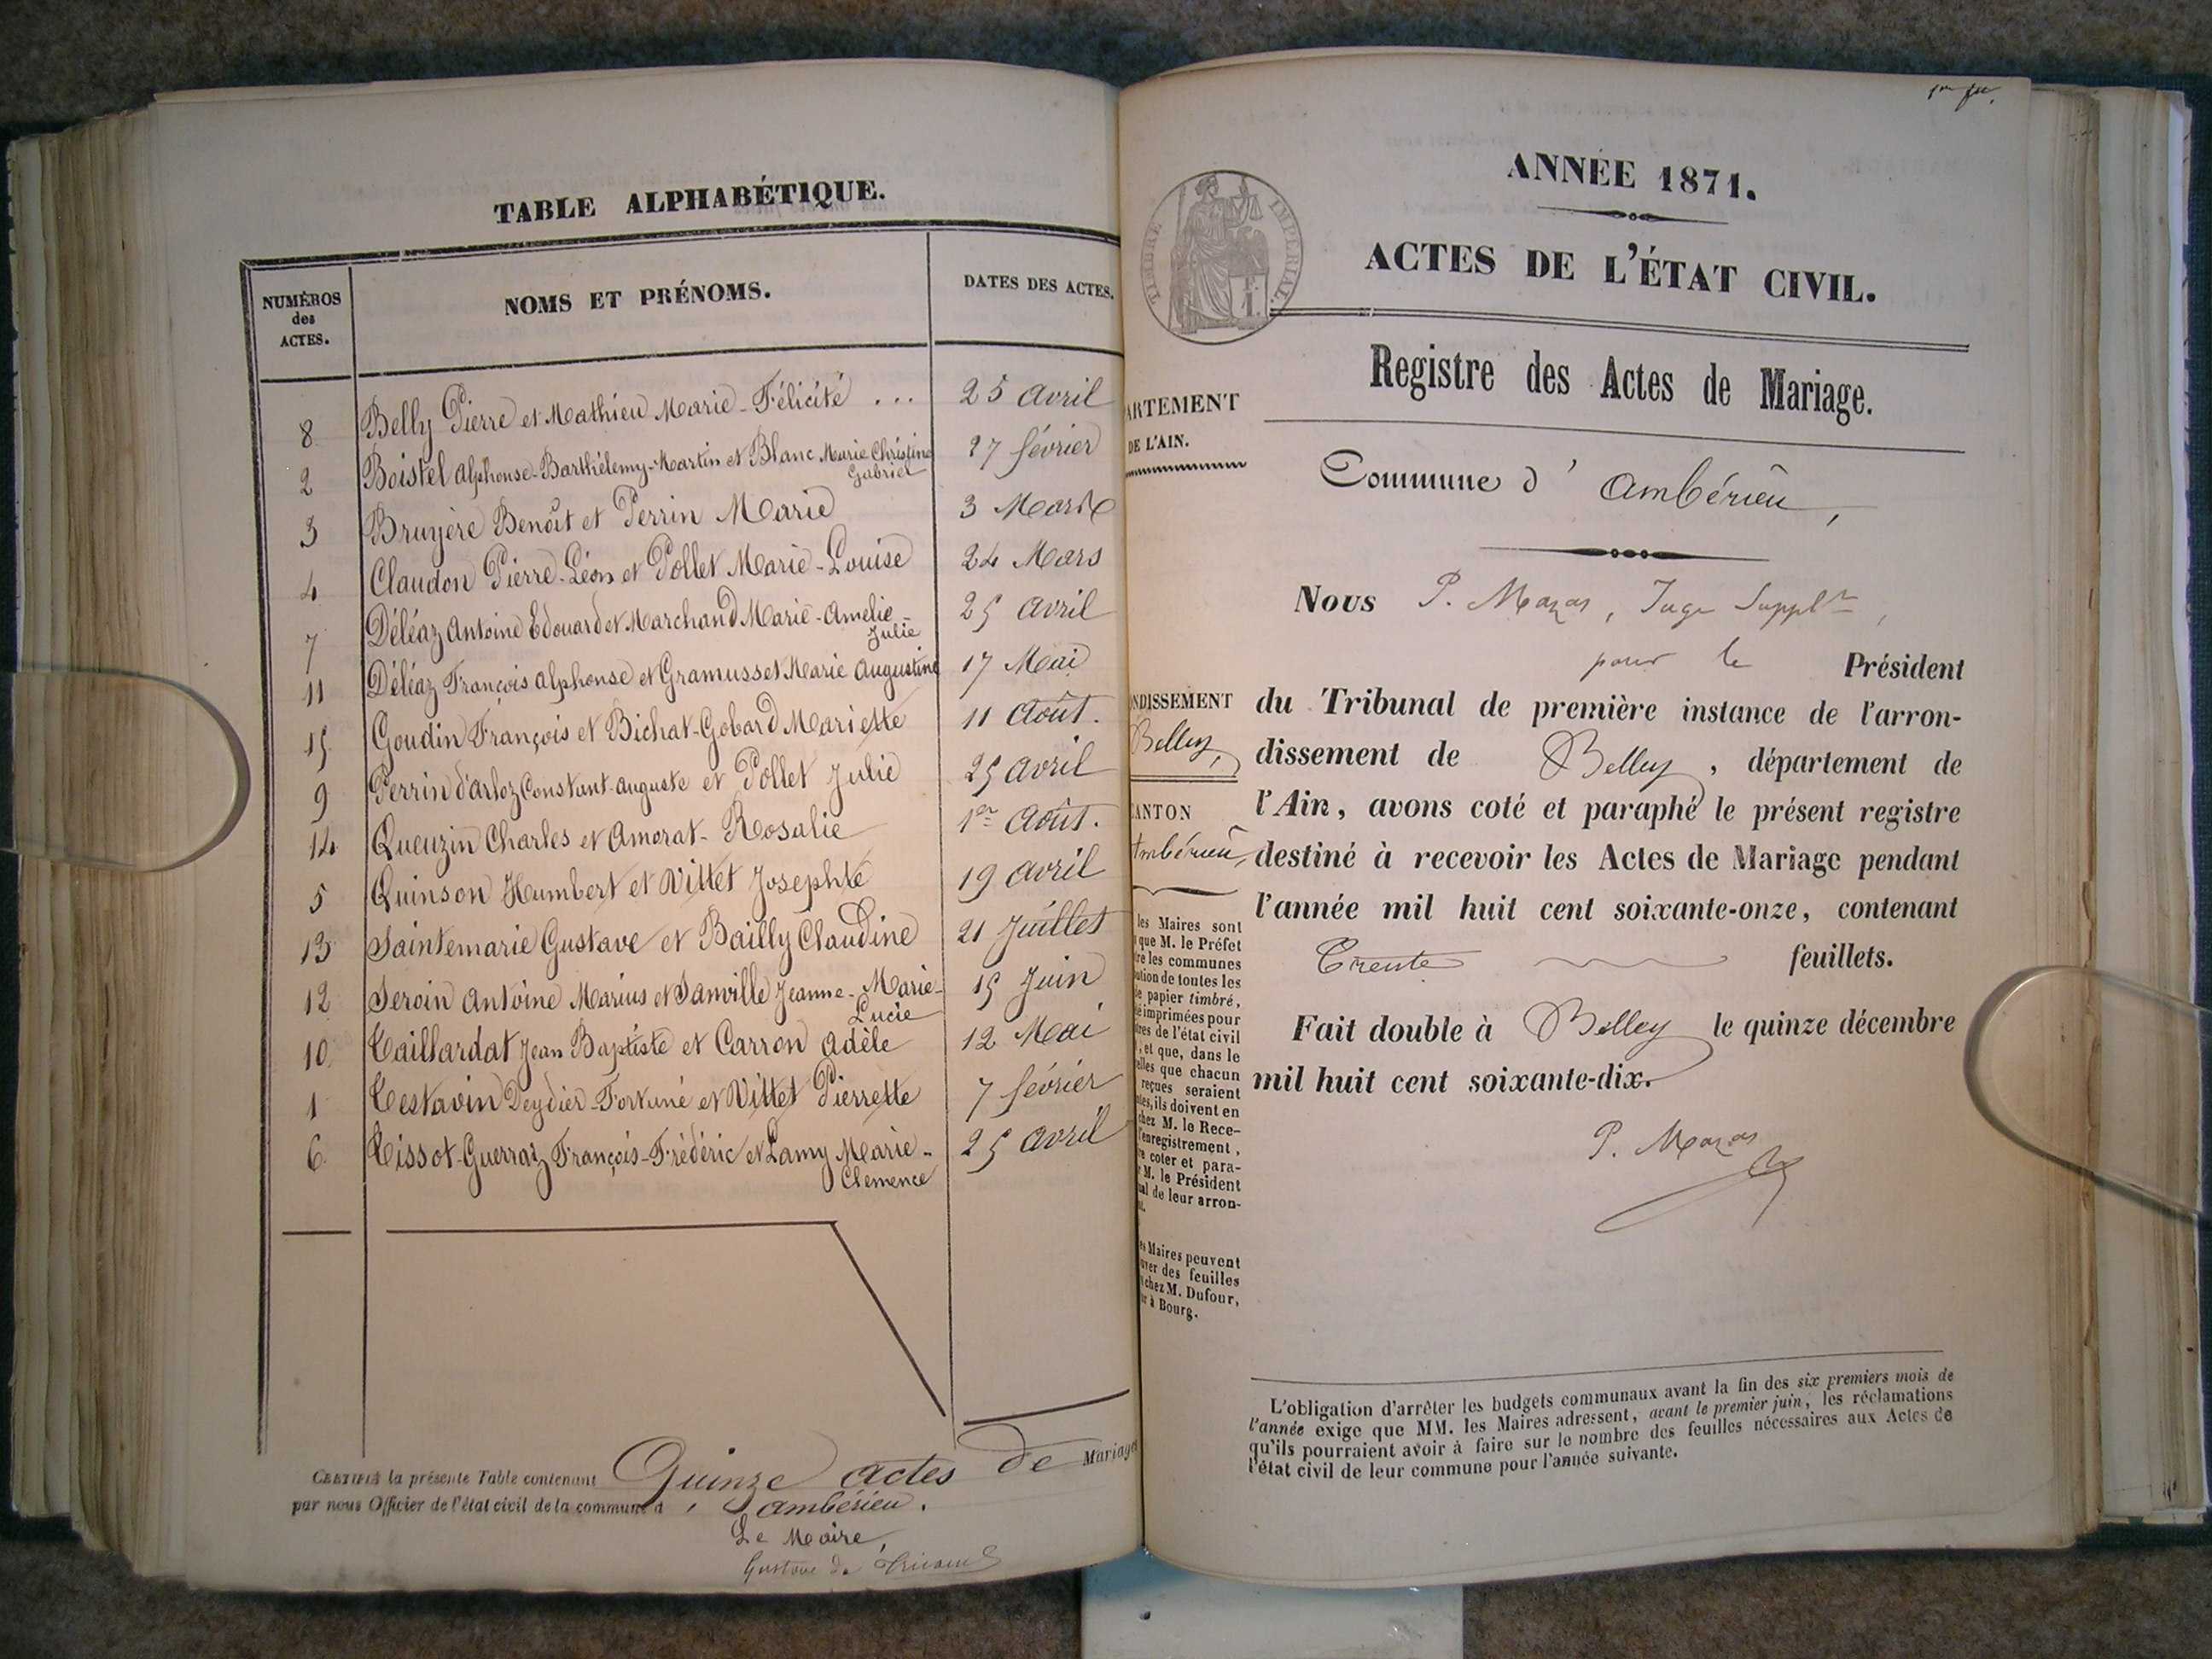 TABLE ALPHABÉTIQUE.
NUMÉROS des ACTES.
NOMS ET PRÉNOMS.
DATES DES ACTES.
8 Belly Pierre et Mathieu Marie-Félicité ... 25 avril
2 Boistel Alphonse-Barthélemy-Martin et Blanc Marie Christine Gabriel 27 février
3 Bruyère Benoît et Perrin Marie 3 Mars
4 Claudon Pierre-Léon et Pollet Marie-Louise 24 Mars
7 Déléaz Antoine Edouard et Marchand Marie-Amélie-Julie 25 avril
11 Déléaz François Alphonse et Gramusset Marie Augustine 17 Mai
15 Goudin François et Bichat-Gobard Mariette 11 Août.
9 Perrin d'arloz Constant-auguste et Pollet Julie 25 avril
14 Queuzin Charles et Amorat-Rosalie 1er Août.
5 Quinson Humbert et Vittet Josephte 19 avril
13 Saintemarie Gustave et Bailly Claudine 21 Juillet
12 Seroin Antoine Marius et Janville Jeanne-Marie-Lucie 15 Juin
10 Taillardat Jean Baptiste et Carron Adèle 12 Mai
1 Testavin Deydier-Fortuné et Vittet Pierrette 7 février
6 Tissot-Guerraz François-Frédéric et Lamy Marie-Clemence 25 avril
CERTIFIÉ la présente Table contenant Quinze actes de Mariages
par nous Officier de l'état civil de la commune d'Ambérieu.
Le Maire,
Gustave de
ANNÉE 1871.
TIMBRE IMPÉRIAL.
ACTES DE L'ÉTAT CIVIL.
Registre des Actes de Mariage.
ARTEMENT
DE L'AIN.
Commune d'Ambérieu,
Nous P. Mazas, Juge Supplt,
pour le Président
NDISSEMENT
Belley,
du Tribunal de première instance de l'arron-
dissement de Belley, département de
CANTON
Ambérieu,
l'Ain, avons coté et paraphé le présent registre
destiné à recevoir les Actes de Mariage pendant
l'année mil huit cent soixante-onze, contenant
Trente feuillets.
Fait double à Belley le quinze décembre
mil huit cent soixante-dix.
P. Mazas
les Maires sont
que M. le Préfet
re les communes
ution de toutes les
e papier timbré,
é imprimées pour
tres de l'état civil
, et que, dans le
elles que chacun
reçues seraient
ntes, ils doivent en
chez M. le Rece-
l'enregistrement,
e coter et para-
r M. le Président
nal de leur arron-
es Maires peuvent
uver des feuilles
chez M. Dufour,
ur à Bourg.
L'obligation d'arrêter les budgets communaux avant la fin des six premiers mois de
l'année exige que MM. les Maires adressent, avant le premier juin, les réclamations
qu'ils pourraient avoir à faire sur le nombre des feuilles nécessaires aux Actes de
l'état civil de leur commune pour l'année suivante.